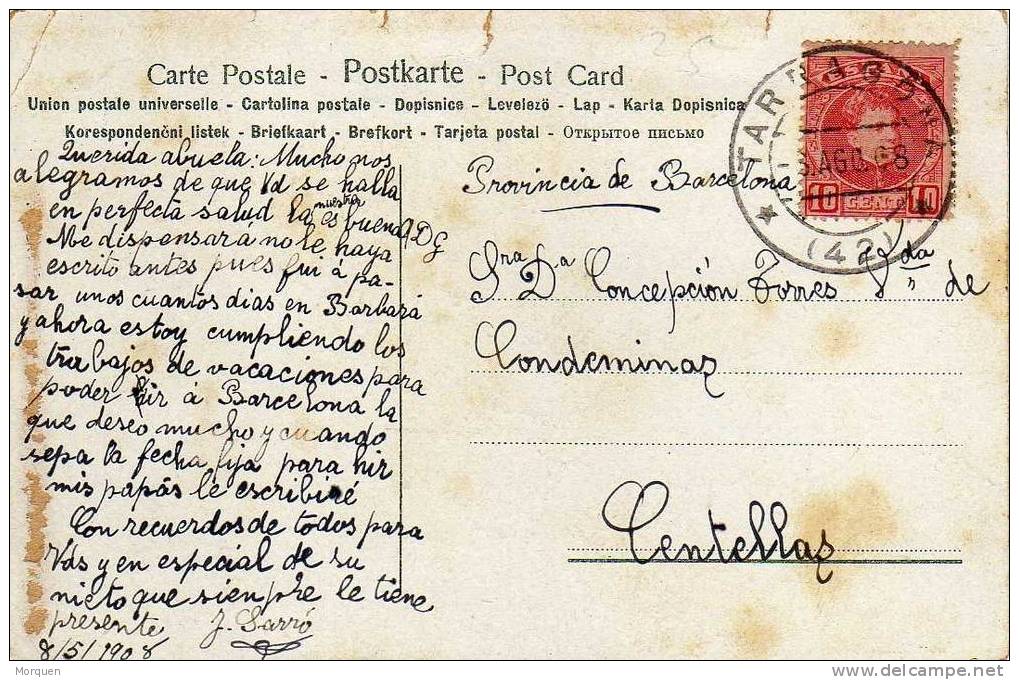 Carte Postale - Postkarte - Post Card
Union postale universelle - Cartolina postale - Dopisnice - Levelező - Lap - Karta Dopisnica
Korespondenční listek - Briefkaart - Brefkort - Tarjeta postal - Открытое письмо
Querida abuela: Mucho nos
alegramos de que Vd se halla
en perfecta salud la nuestra es buena ADG
Me dispensará no le haya
escrito antes pues fui á pa-
sar unos cuantos dias en Barbará
y ahora estoy cumpliendo los
trabajos de vacaciones para
poder hir á Barcelona la
que deseo mucho y cuando
sepa la fecha fija para hir
mis papás le escribiré
Con recuerdos de todos para
Vds y en especial de su
nieto que sienpre le tiene
presente J. Sarró
8/5/1908
Provincia de Barcelona
Sra Da Concepción Torres Vda de
Condeminas
Centellas
TARRAGONA
AGO. 08
(42)
10 CENT. 10
Morquen
delcampe.net